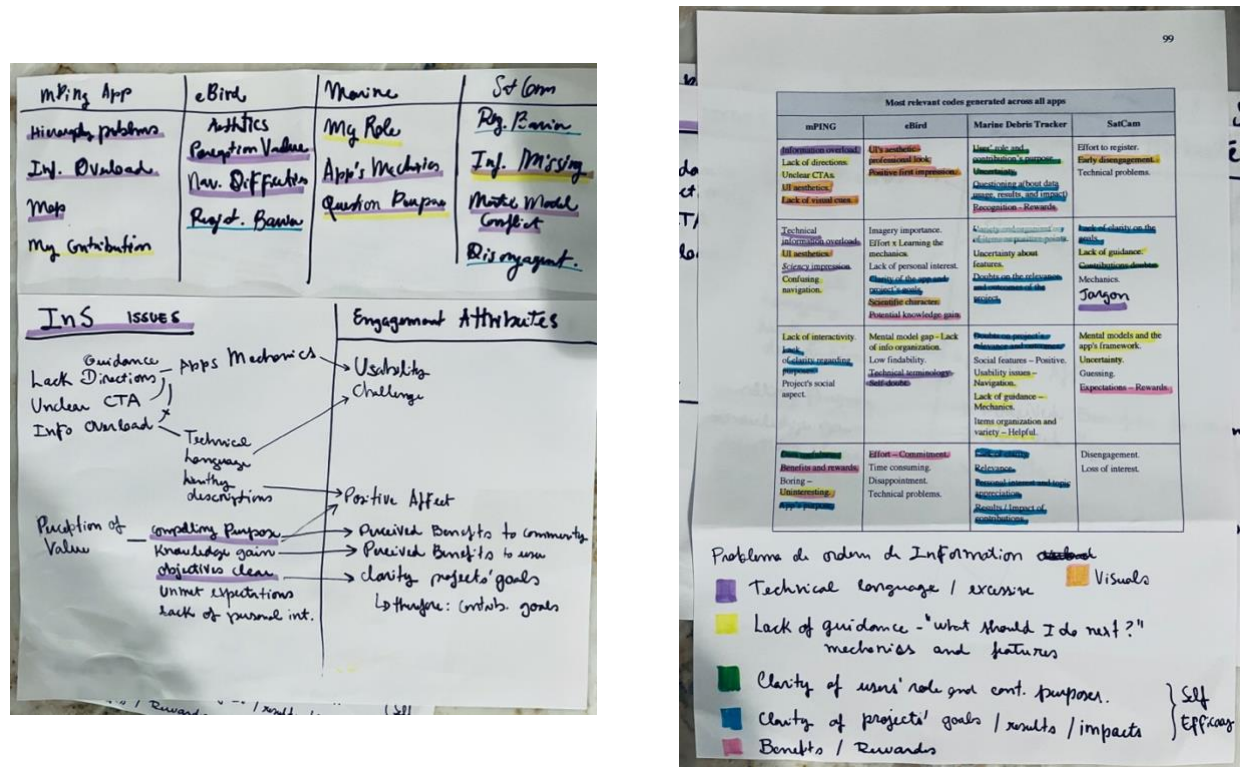 mPing App
Hierarchy problems
Inf. Overload
Map
My Contribution
eBird
Aesthtics
Perception Value
Nav. Difficulties
Regist. Barrier
Marine
My Role
App's Mechanics
Question Purpose
SatCam
Reg. Barrier
Inf. Missing
Mental Model
Conflict
Disengagement.
InS ISSUES
Engagement Attributes
Guidance
Lack Directions
Unclear CTA
Info Overload
Apps Mechanics
Technical
Language
lengthy
descriptions
Perception of
Value
compelling Purpose
Knowledge gain
objectives clear
Unmet expectations
lack of personal int.
Usability
Challenge
Positive Affect
Perceived Benefits to community
Perceived Benefits to user
clarity projects' goals
therefore: contrib. goals
/ Rewards
99
Most relevant codes generated across all apps
mPING
eBird
Marine Debris Tracker
SatCam
Information overload.
Lack of directions.
Unclear CTAs.
UI aesthetics.
Lack of visual cues.
UI's aesthetic
professional look.
Positive first impression.
Users' role and
contribution's purpose.
Uncertainty.
Questioning a(bout data
usage, results, and impact)
Recognition - Rewards.
Effort to register.
Early disengagement.
Technical problems.
Technical
information overload.
UI aesthetics.
Sciency impression.
Confusing
navigation.
Imagery importance.
Effort x Learning the
mechanics.
Lack of personal interest.
Clarity of the app and
project's goals.
Scientific character.
Potential knowledge gain.
Uncertainty about
features.
Doubts on the relevance
and outcomes of the
project.
Lack of clarity on the
goals.
Lack of guidance.
Contributions doubts.
Mechanics.
Jargon
Lack of interactivity.
Lack
of clarity regarding
purposes.
Project's social
aspect.
Mental model gap - Lack
of info organization.
Low findability.
Technical terminology.
Self-doubt.
Doubts on project's
relevance and
Social features – Positive.
Usability issues –
Navigation.
Lack of guidance –
Mechanics.
Items organization and
variety – Helpful.
Mental models and the
app's framework.
Uncertainty.
Guessing.
Expectations – Rewards.
Benefits and rewards.
Boring –
Uninteresting.
App's purpose.
Effort – Commitment.
Time consuming.
Disappointment.
Technical problems.
Lack of clarity.
Relevance.
Personal interest and topic
appreciation.
Results / Impact of
contributions.
Disengagement.
Loss of interest.
Problema de ordem de Information
Technical language / excessive
Visuals
Lack of guidance - "what should I do next?"
mechanics and features
Clarity of users' role and cont. purposes.
Clarity of projects' goals / results / impacts
Self
Efficacy
Benefits / Rewards